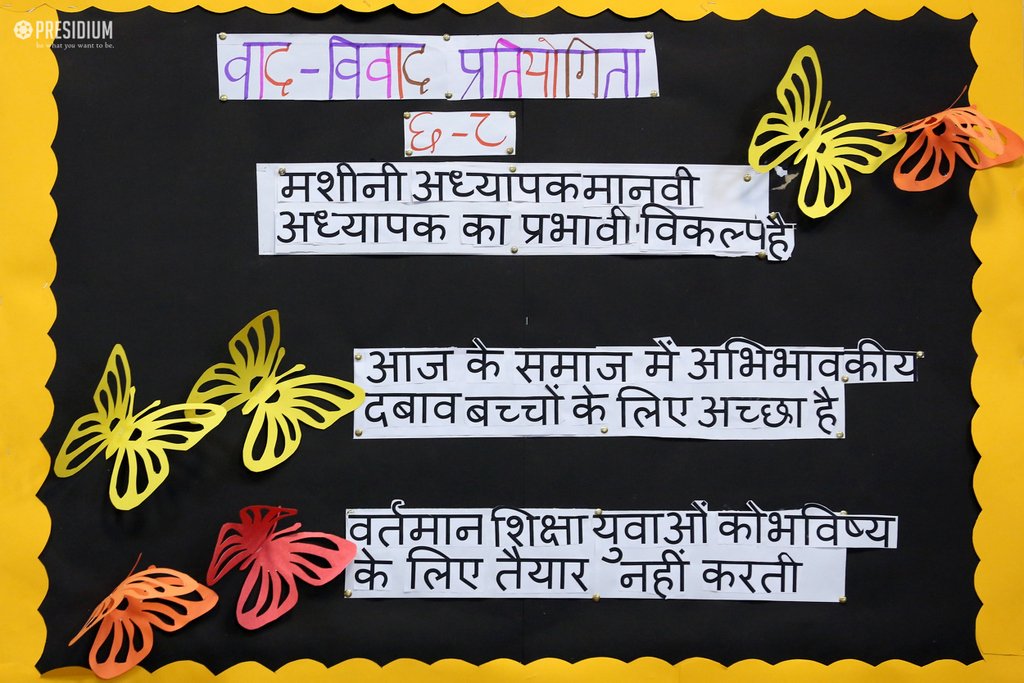 PRESIDIUM
be what you want to be.
वाद-विवाद प्रतियोगिता
६-८
मशीनी अध्यापक मानवी
अध्यापक का प्रभावी विकल्प है
आज के समाज में अभिभावकीय
दबाव बच्चों के लिए अच्छा है
वर्तमान शिक्षा युवाओं को भविष्य
के लिए तैयार नहीं करती